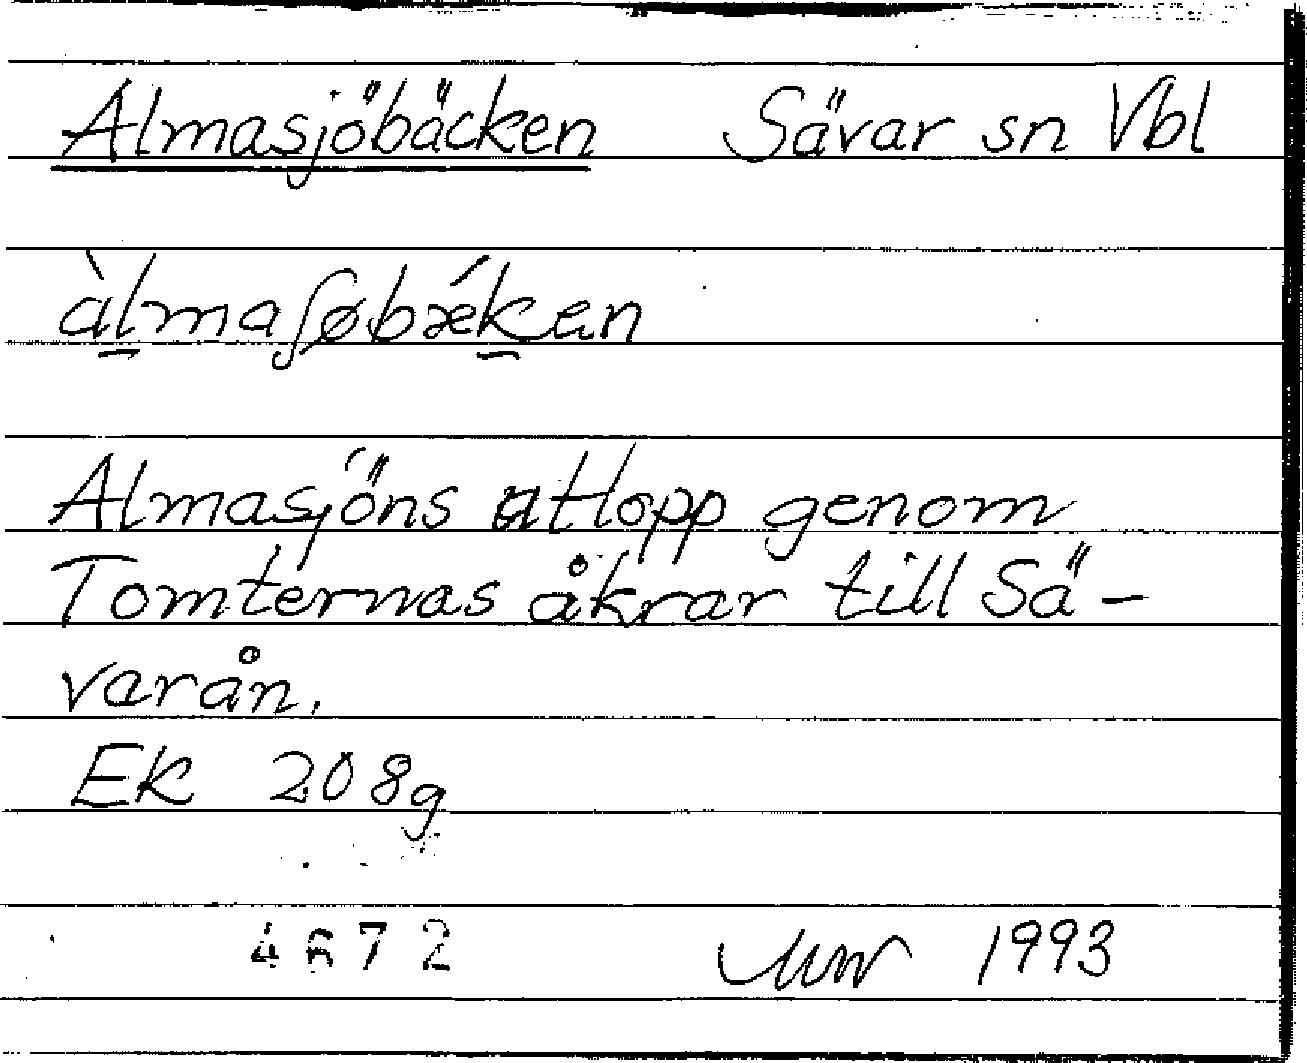 Almasjöbäcken Sävar sn Vbl
àlmaʃøbǽken
Almasjöns utlopp genom
Tomternas åkrar till Sä-
varån.
Ek 208g
4672 1993